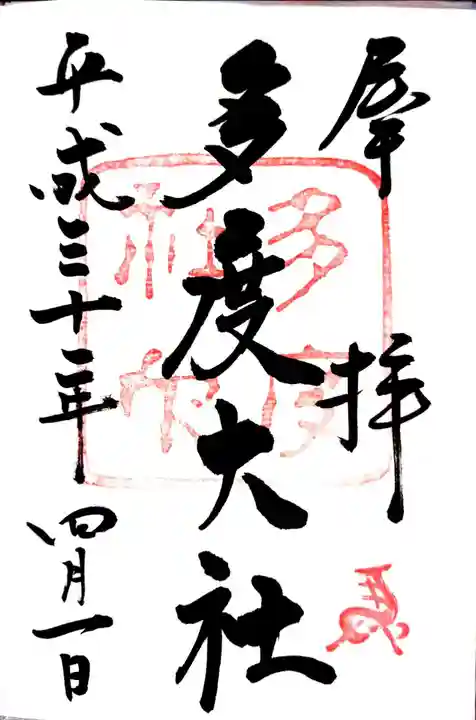 奉拝
多度大社
平成三十一年四月一日
多度
社印